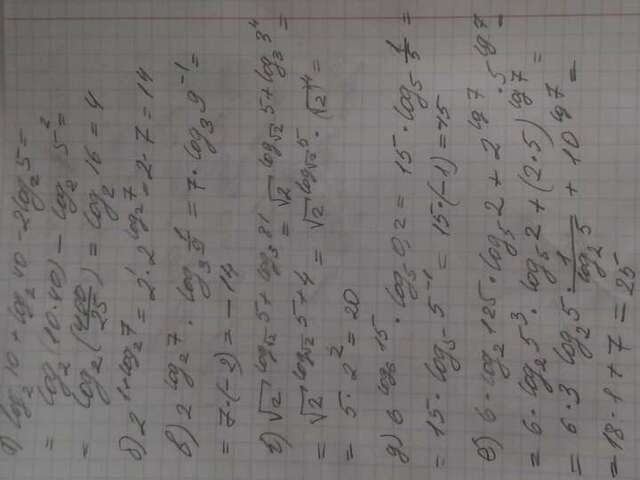 а) log₂10 + log₂40 - 2log₂5 =
= log₂(10·40) - log₂5² =
= log₂(400/25) = log₂16 = 4
б) 2^(1+log₂7) = 2¹·2^(log₂7) = 2·7 = 14
в) 2^(log₂7) · log₃ 1/9 = 7·log₃9⁻¹ =
= 7·(-2) = -14
г) √2^(log_√2 5 + log₃81) = √2^(log_√2 5 + log₃3⁴) =
= √2^(log_√2 5 + 4) = √2^(log_√2 5) · (√2)⁴ =
= 5·2² = 20
д) 6^(log₆15) · log₅0,2 = 15·log₅ 1/5 =
= 15·log₅5⁻¹ = 15·(-1) = -15
е) 6·log₂125·log₅2 + 2^(lg7) · 5^(lg7) =
= 6·log₂5³·log₅2 + (2·5)^(lg7) =
= 6·3 log₂5 · 1/log₂5 + 10^(lg7) =
= 18·1 + 7 = 25